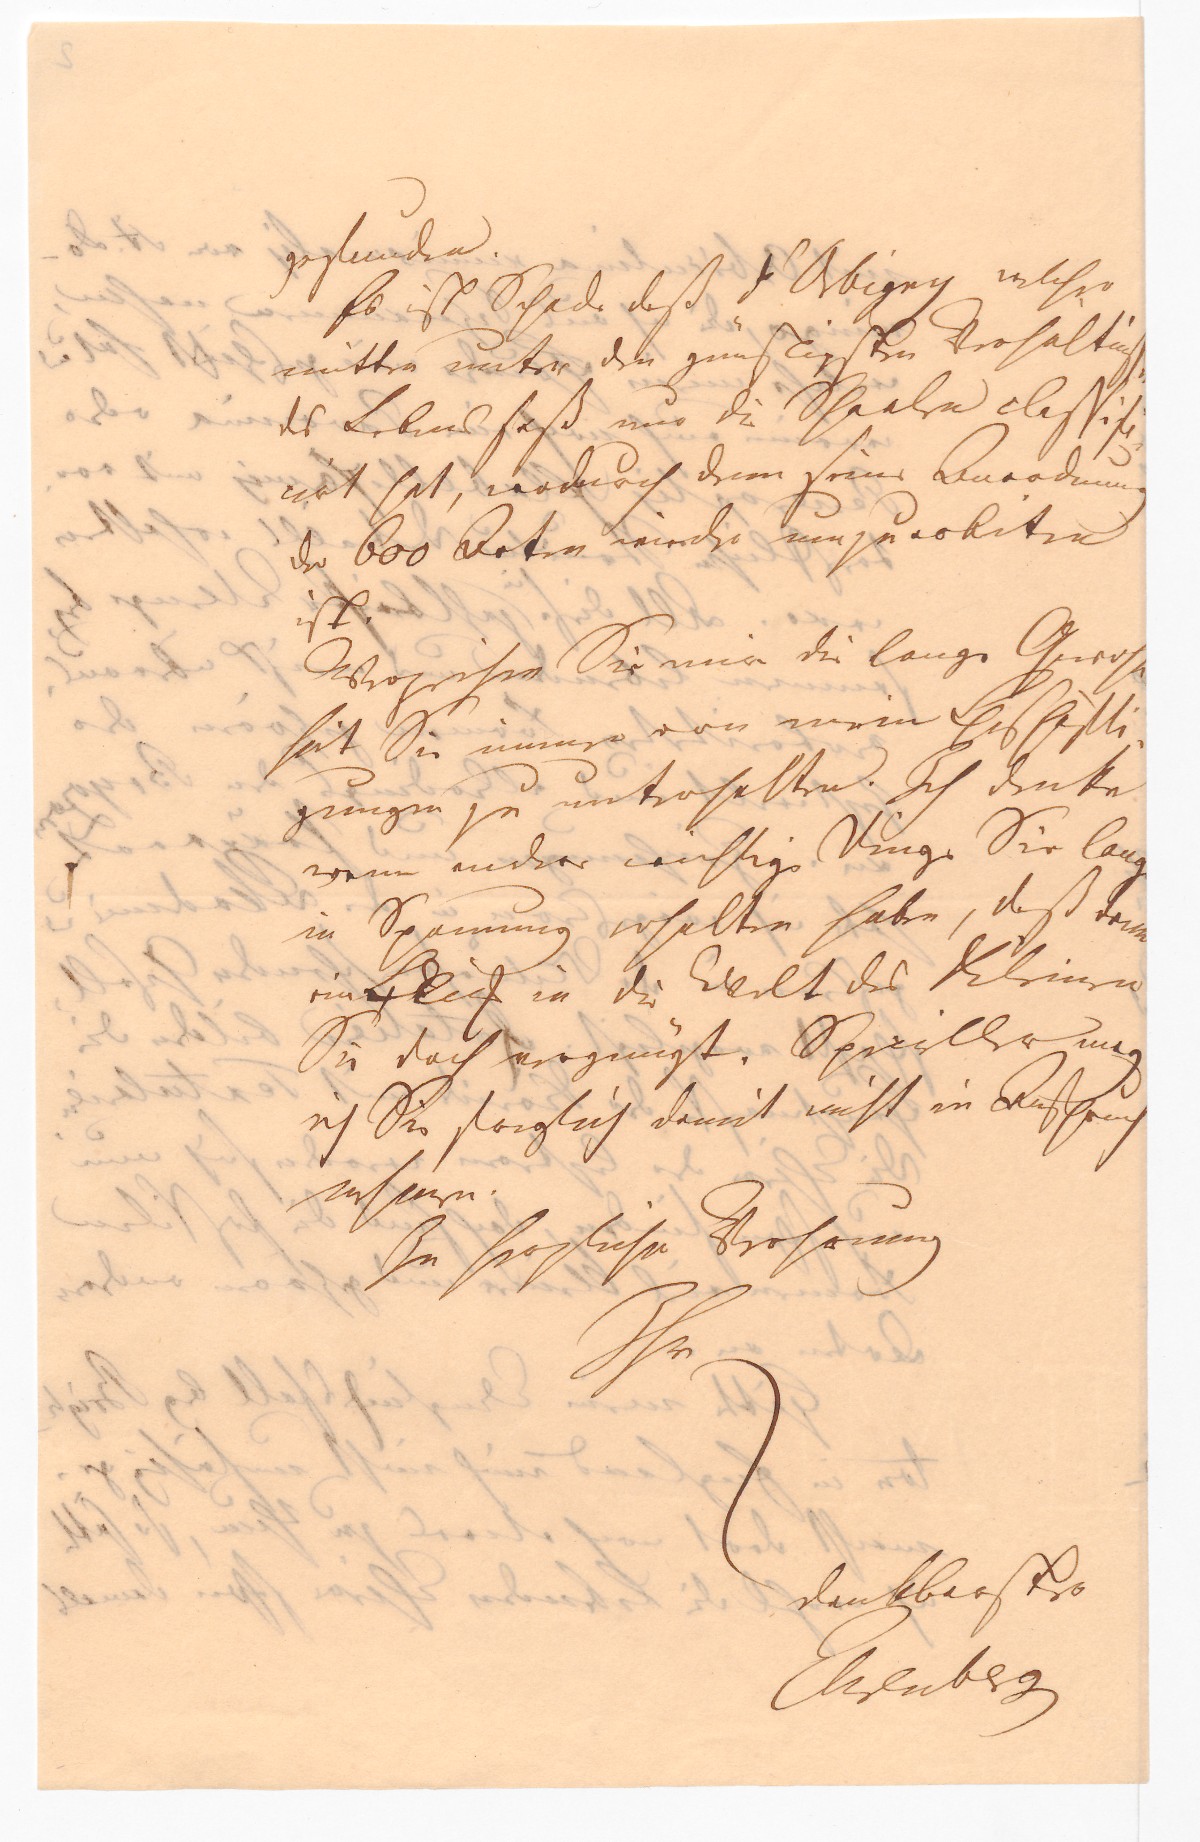 gefunden.
Es ist Schade daß d'Orbigny welcher
mitten unter den günstigsten Verhältnissen
des Lebens saß nur die Schaalen classifi-
cirt hat, wodurch denn seine Anordnung
der 600 Arten wieder umzuarbeiten
ist.
Verzeihen Sie mir die lange Gewohn
heit Sie immer von mein Beschäfti-
gungen zu unterhalten. Ich denke
wenn andre wichtige Dinge Sie lange
in Spannung erhalten haben, daß dann
ein Blick in die Welt des Kleinen
Sie doch vergnügt. Spezieller mag
ich Sie freylich damit nicht in Anspruch
nehmen.
In herzlicher Verehrung
Ihr
dankbarster
Ehrenberg